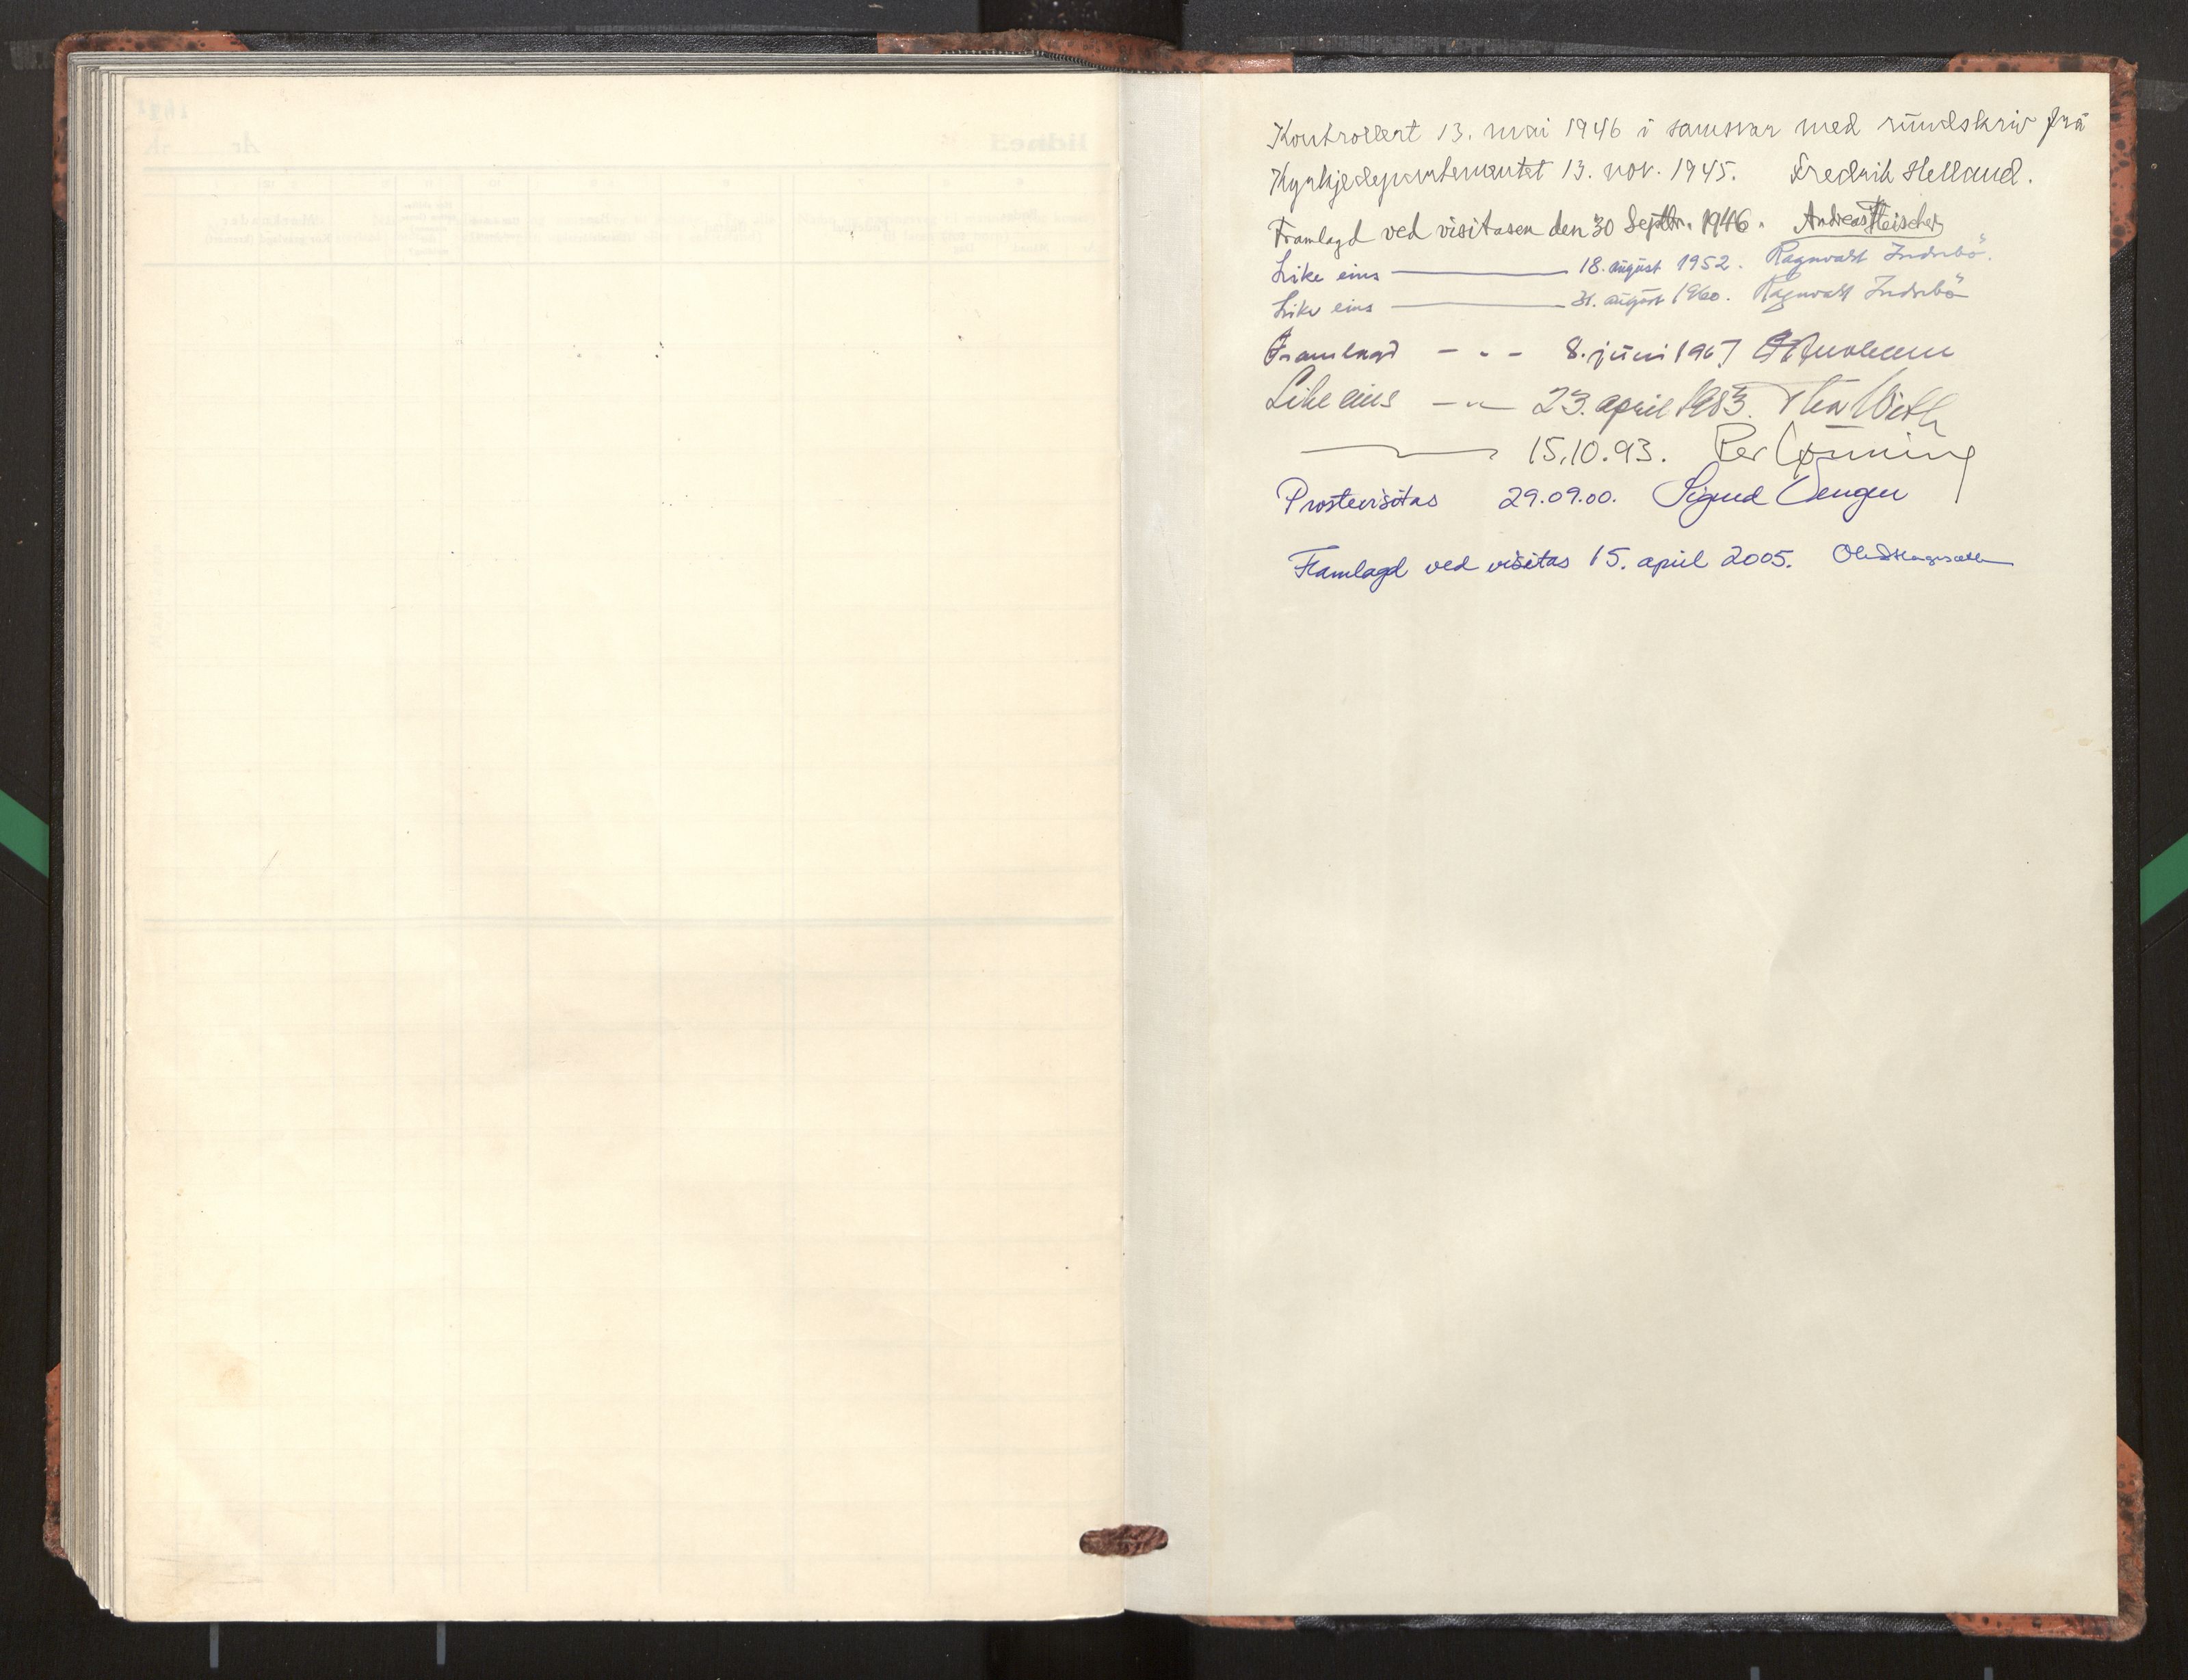 Kontrollert 13. mai 1946 i samsvar med rundskriv frå
Kyrkjedepartementet 13. nov. 1945. Fredrik Helland.
Framlagd ved visitasen den 30 Septbr. 1946. Andreas Fleischer
Like eins 18. august 1952. Ragnvald Indrebö.
Like eins 31. august 1960. Ragnvald Indrebö
Framlagd - " - 8. juni 1967
Like eins - " - 23. april 1983. Thor With
15.10.93. Per Lønning
Prostevisitas 29.09.00. Sigurd Vengen
Framlagd ved visitas 15. april 2005. Ole D Hagesæther